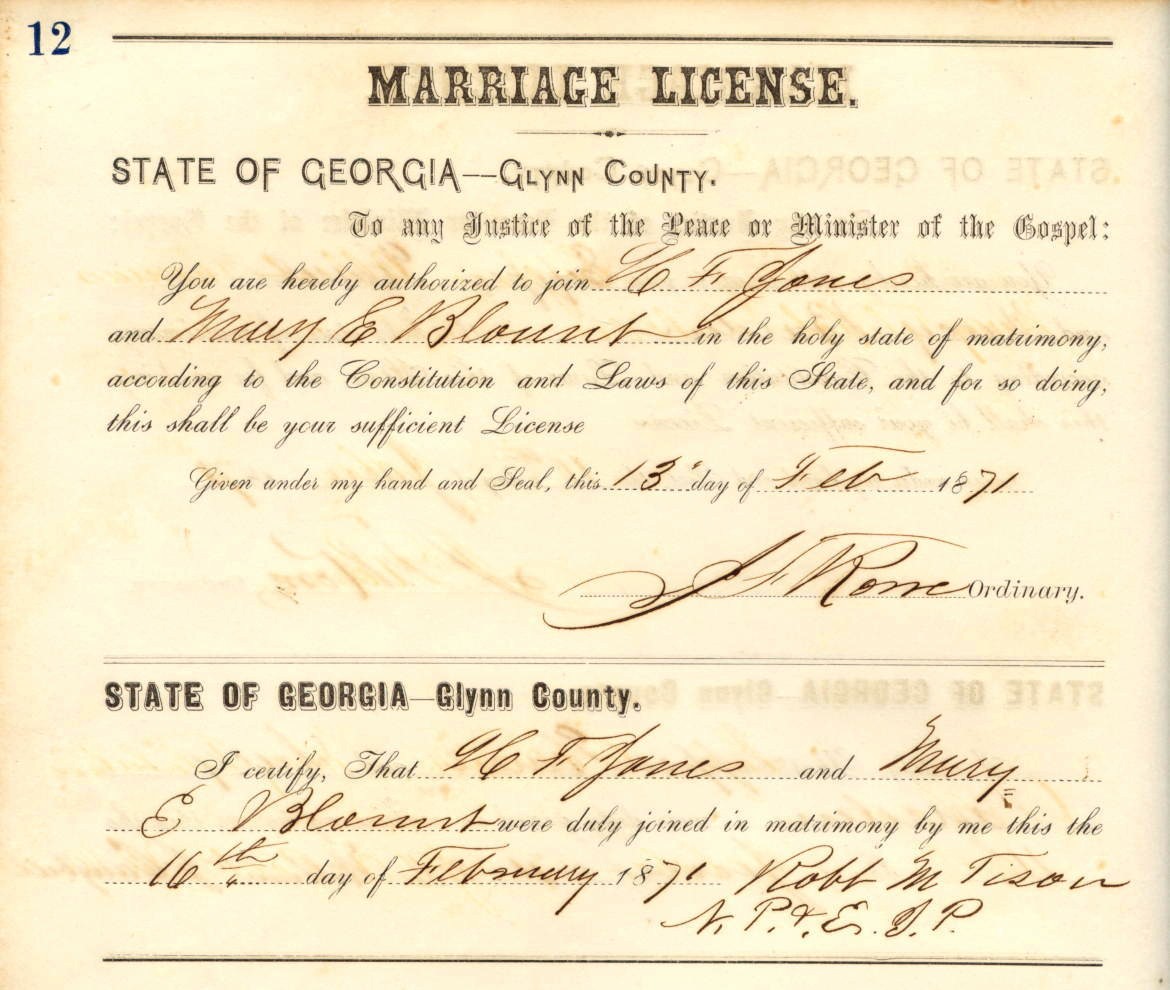 12
MARRIAGE LICENSE.
STATE OF GEORGIA—GLYNN COUNTY.
To any Justice of the Peace or Minister of the Gospel:
You are hereby authorized to join H F Jones
and Mary E Blount in the holy state of matrimony,
according to the Constitution and Laws of this State, and for so doing,
this shall be your sufficient License
Given under my hand and Seal, this 13" day of Feb 1871
F Ordinary.
STATE OF GEORGIA—Glynn County.
I certify, That H F Jones and Mary
E Blount were duly joined in matrimony by me this the
16th day of February 1871 Robt M Tison
N. P. & Ex. J. P.